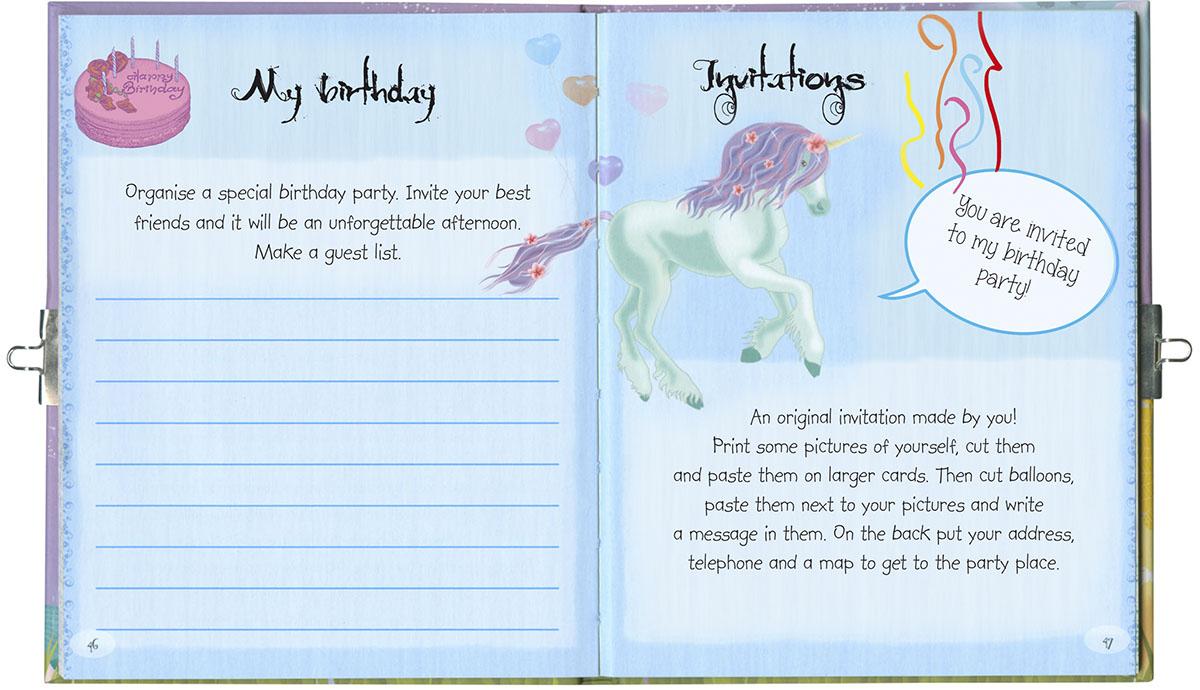 Happy
Birthday
My birthday
Organise a special birthday party. Invite your best
friends and it will be an unforgettable afternoon.
Make a guest list.
46
Invitations
You are invited
to my birthday
party!
An original invitation made by you!
Print some pictures of yourself, cut them
and paste them on larger cards. Then cut balloons,
paste them next to your pictures and write
a message in them. On the back put your address,
telephone and a map to get to the party place.
47